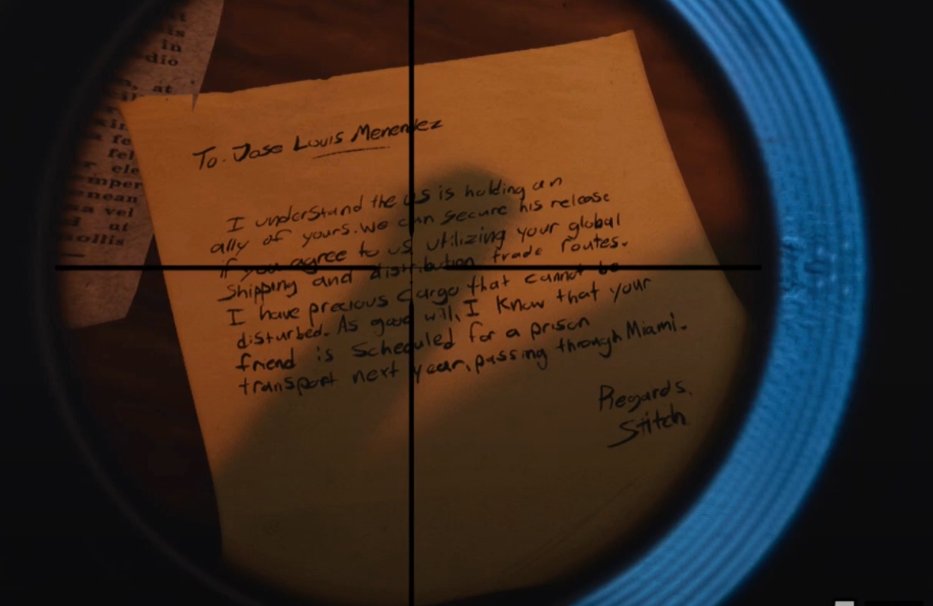 at
is
in
dio
at
fel
ele
mper
enean
a vel
ut
mollis
To. Jose Louis Menendez
I understand the US is holding an
ally of yours. We can secure his release
if you agree to us utilizing your global
Shipping and distribution trade routes.
I have precious cargo that cannot be
disturbed. As good will, I know that your
friend is scheduled for a prison
transport next year, passing through Miami.
Regards,
Stitch